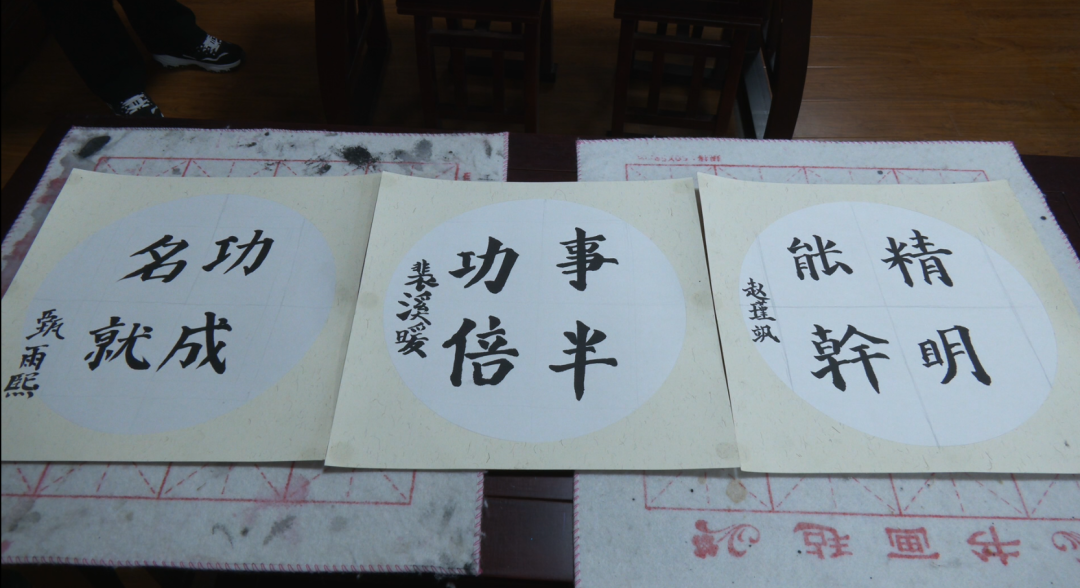 功成
名就
甄雨熙
事半
功倍
裴溪暖
精明
能幹
赵飒
书画毡